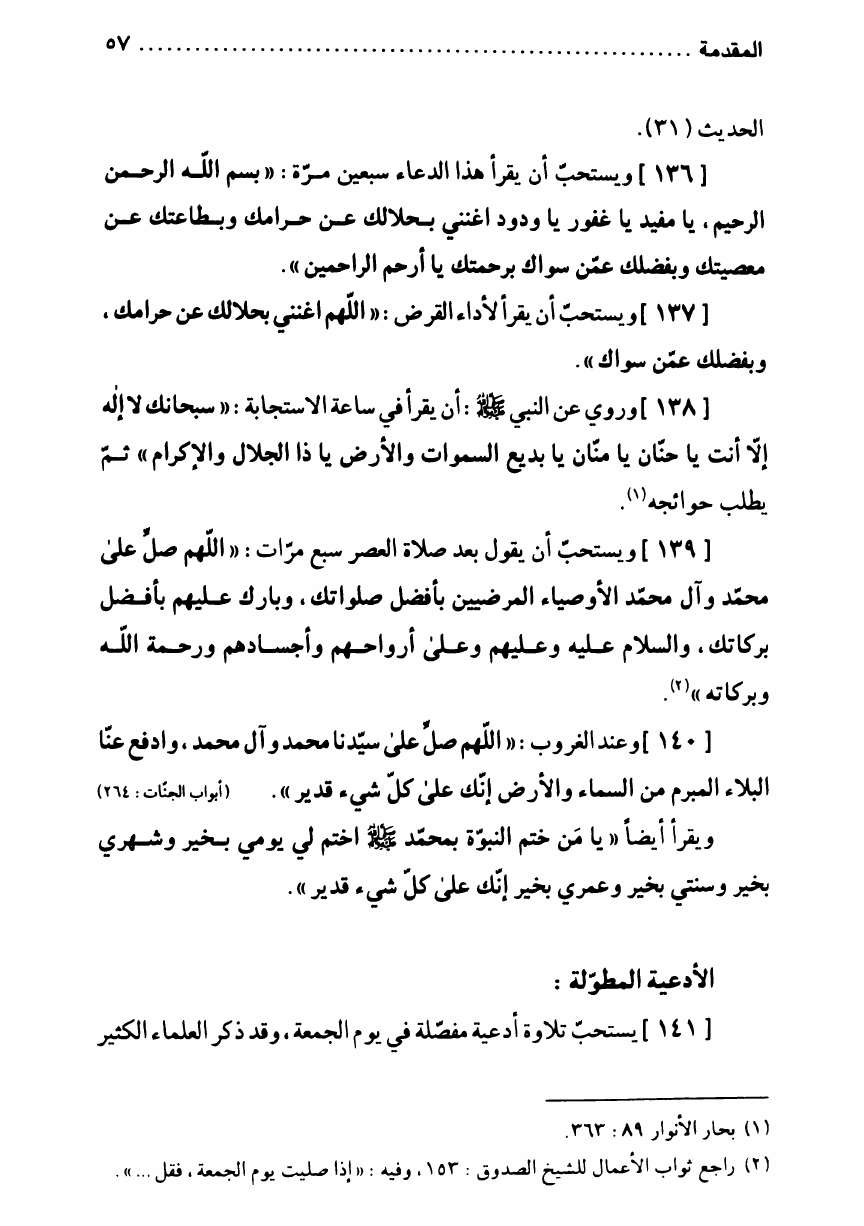 المقدمة ............................................................ ٥٧
الحديث (٣١).
[ ١٣٦ ] ويستحبّ أن يقرأ هذا الدعاء سبعين مـرّة : « بسم اللّـه الرحـمن
الرحيم ، يا مفيد يا غفور يا ودود اغنني بـحلالك عـن حـرامك وبـطاعتك عـن
معصيتك وبفضلك عمّن سواك برحمتك يا أرحم الراحمين ».
[ ١٣٧ ] ويستحبّ أن يقرأ لأداء القرض : « اللّهم اغنني بحلالك عن حرامك ،
وبفضلك عمّن سواك ».
[ ١٣٨ ] وروي عن النبي ﷺ : أن يقرأ في ساعة الاستجابة : « سبحانك لا إلٰه
إلّا أنت يا حنّان يا منّان يا بديع السموات والأرض يا ذا الجلال والإكرام » ثـمّ
يطلب حوائجه(١).
[ ١٣٩ ] ويستحبّ أن يقول بعد صلاة العصر سبع مرّات : « اللّهم صلِّ علىٰ
محمّد وآل محمّد الأوصياء المرضيين بأفضل صلواتك ، وبارك عـليهم بأفـضل
بركاتك ، والسلام عـليه وعـليهم وعـلىٰ أرواحـهم وأجسـادهم ورحـمة اللّـه
وبركاته »(٢).
[ ١٤٠ ] وعند الغروب : « اللّهم صلِّ علىٰ سيّدنا محمد وآل محمد ، وادفع عنّا
البلاء المبرم من السماء والأرض إنّك علىٰ كلّ شيء قدير ». (أبواب الجنّات : ٢٦٤)
ويقرأ أيضاً « يا مَن ختم النبوّة بمحمّد ﷺ اختم لي يومي بـخير وشـهري
بخير وسنتي بخير وعمري بخير إنّك علىٰ كلّ شيء قدير ».
الأدعية المطوّلة :
[ ١٤١ ] يستحبّ تلاوة أدعية مفصّلة في يوم الجمعة ، وقد ذكر العلماء الكثير
(١) بحار الأنوار ٨٩ : ٣٦٣.
(٢) راجع ثواب الأعمال للشيخ الصدوق : ١٥٣ ، وفيه : « إذا صليت يوم الجمعة ، فقل ... ».